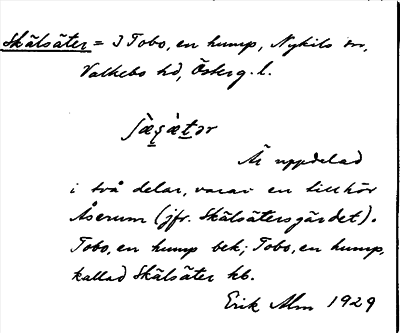 Skälsäter = I Tobo, en hump, Nykils sn,
Valkebo hd, Österg. l.
Är uppdelad
i två delar, varav en tillhör
Åserum (jfr. Skälsätersgärdet).
Tobo, en hump bek; Tobo, en hump,
kallad Skälsäter hb.
Erik Alm 1929